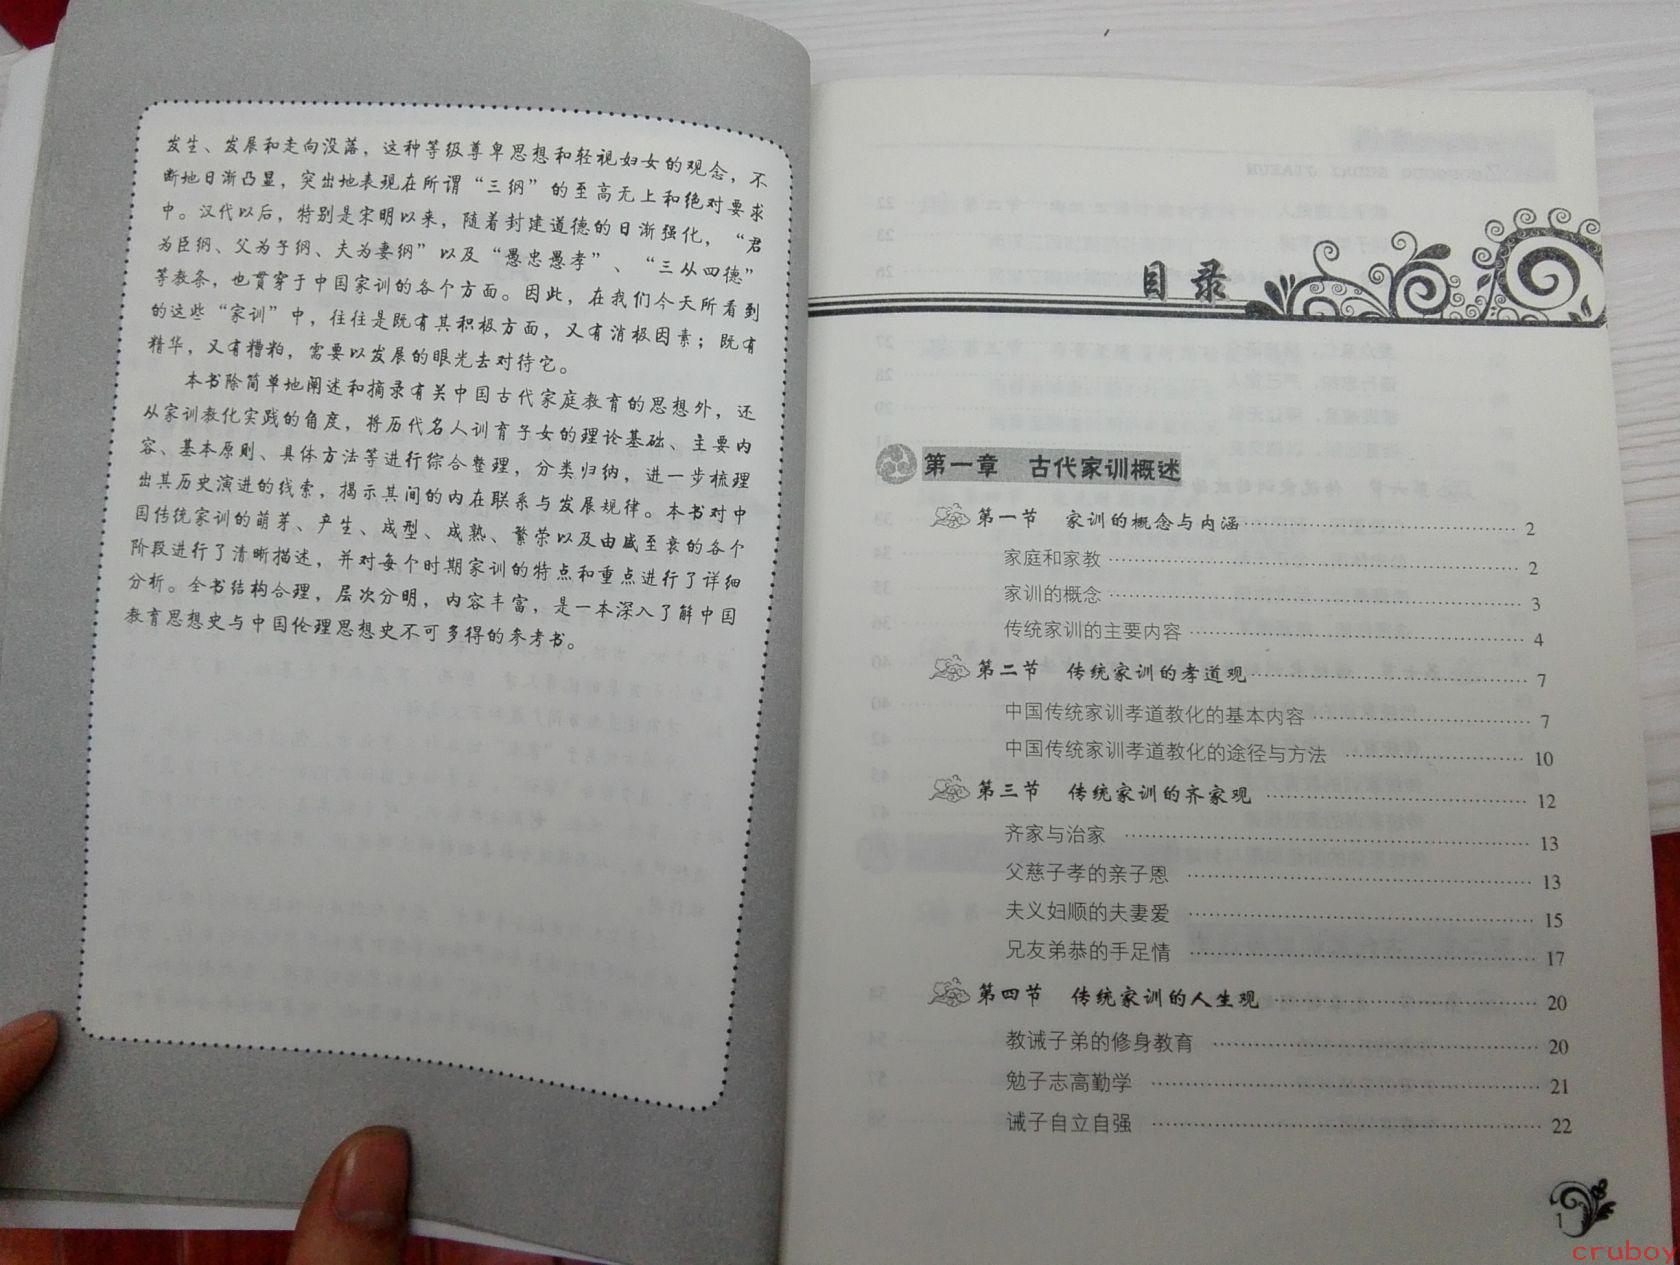 发生、发展和走向没落，这种等级尊卑思想和轻视妇女的观念，不
断地日渐凸显，突出地表现在所谓“三纲”的至高无上和绝对要求
中。汉代以后，特别是宋明以来，随着封建道德的日渐强化，“君
为臣纲、父为子纲、夫为妻纲”以及“愚忠愚孝”、“三从四德”
等教条，也贯穿于中国家训的各个方面。因此，在我们今天所看到
的这些“家训”中，往往是既有其积极方面，又有消极因素；既有
精华，又有糟粕，需要以发展的眼光去对待它。
本书除简单地阐述和摘录有关中国古代家庭教育的思想外，还
从家训教化实践的角度，将历代名人训育子女的理论基础、主要内
容、基本原则、具体方法等进行综合整理，分类归纳，进一步梳理
出其历史演进的线索，揭示其间的内在联系与发展规律。本书对中
国传统家训的萌芽、产生、成型、成熟、繁荣以及由盛至衰的各个
阶段进行了清晰描述，并对每个时期家训的特点和重点进行了详细
分析。全书结构合理，层次分明，内容丰富，是一本深入了解中国
教育思想史与中国伦理思想史不可多得的参考书。
目录
第一章 古代家训概述
第一节 家训的概念与内涵 2
家庭和家教 2
家训的概念 3
传统家训的主要内容 4
第二节 传统家训的孝道观 7
中国传统家训孝道教化的基本内容 7
中国传统家训孝道教化的途径与方法 10
第三节 传统家训的齐家观 12
齐家与治家 13
父慈子孝的亲子恩 13
夫义妇顺的夫妻爱 15
兄友弟恭的手足情 17
第四节 传统家训的人生观 20
教诫子弟的修身教育 20
勉子志高勤学 21
诫子自立自强 22
1
cruboy